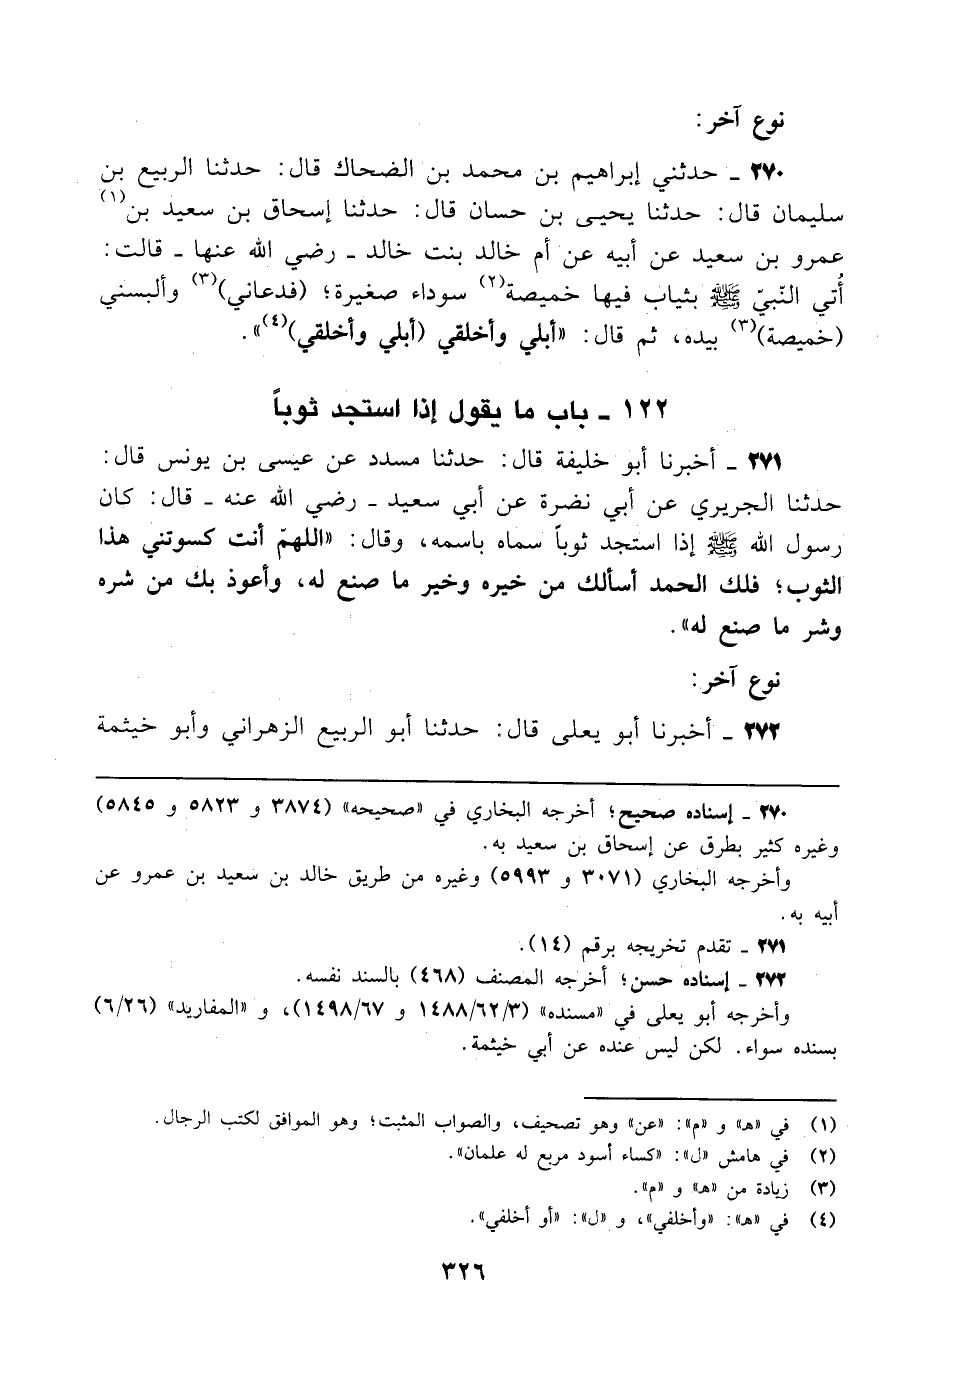 نوع آخر:
٢٧٠ ـ حدثني إبراهيم بن محمد بن الضحاك قال: حدثنا الربيع بن
سليمان قال: حدثنا يحيى بن حسان قال: حدثنا إسحاق بن سعيد بن(١)
عمرو بن سعيد عن أبيه عن أم خالد بنت خالد ـ رضي الله عنها ـ قالت:
أُتي النّبيّ ﷺ بثياب فيها خميصة(٢) سوداء صغيرة؛ (فدعاني)(٣) وألبسني
(خميصة)(٣) بيده، ثم قال: «أبلي وأخلقي (أبلي وأخلقي)(٤)».
١٢٢ ـ باب ما يقول إذا استجد ثوباً
٢٧١ ـ أخبرنا أبو خليفة قال: حدثنا مسدد عن عيسى بن يونس قال:
حدثنا الجريري عن أبي نضرة عن أبي سعيد ـ رضي الله عنه ـ قال: كان
رسول الله ﷺ إذا استجد ثوباً سماه باسمه، وقال: «اللهمّ أنت كسوتني هذا
الثوب؛ فلك الحمد أسألك من خيره وخير ما صنع له، وأعوذ بك من شره
وشر ما صنع له».
نوع آخر:
٢٧٢ ـ أخبرنا أبو يعلى قال: حدثنا أبو الربيع الزهراني وأبو خيثمة
٢٧٠ ـ إسناده صحيح؛ أخرجه البخاري في «صحيحه» (٣٨٧٤ و ٥٨٢٣ و ٥٨٤٥)
وغيره كثير بطرق عن إسحاق بن سعيد به.
وأخرجه البخاري (٣٠٧١ و ٥٩٩٣) وغيره من طريق خالد بن سعيد بن عمرو عن
أبيه به.
٢٧١ ـ تقدم تخريجه برقم (١٤).
٢٧٢ ـ إسناده حسن؛ أخرجه المصنف (٤٦٨) بالسند نفسه.
وأخرجه أبو يعلى في «مسنده» (٣/٦٢/١٤٨٨ و ٦٧/١٤٩٨)، و «المفاريد» (٦/٢٦)
بسنده سواء. لكن ليس عنده عن أبي خيثمة.
(١) في «هـ» و «م»: «عن» وهو تصحيف، والصواب المثبت؛ وهو الموافق لكتب الرجال.
(٢) في هامش «ل»: «كساء أسود مربع له علمان».
(٣) زيادة من «هـ» و «م».
(٤) في «هـ»: «وأخلفي»، و «ل»: «أو أخلفي».
٣٢٦